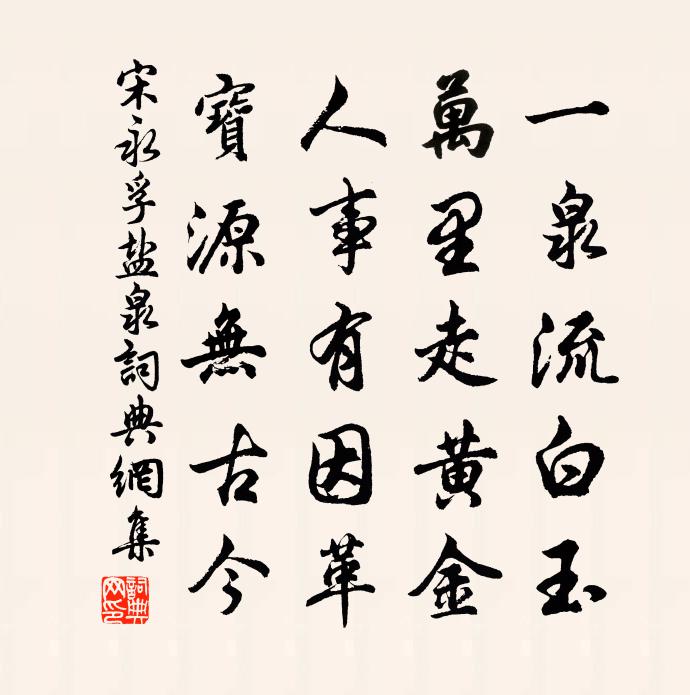 一泉流白玉
萬里走黃金
人事有因革
寶源無古今
宋永孚盐泉詞典網集
詞典网印